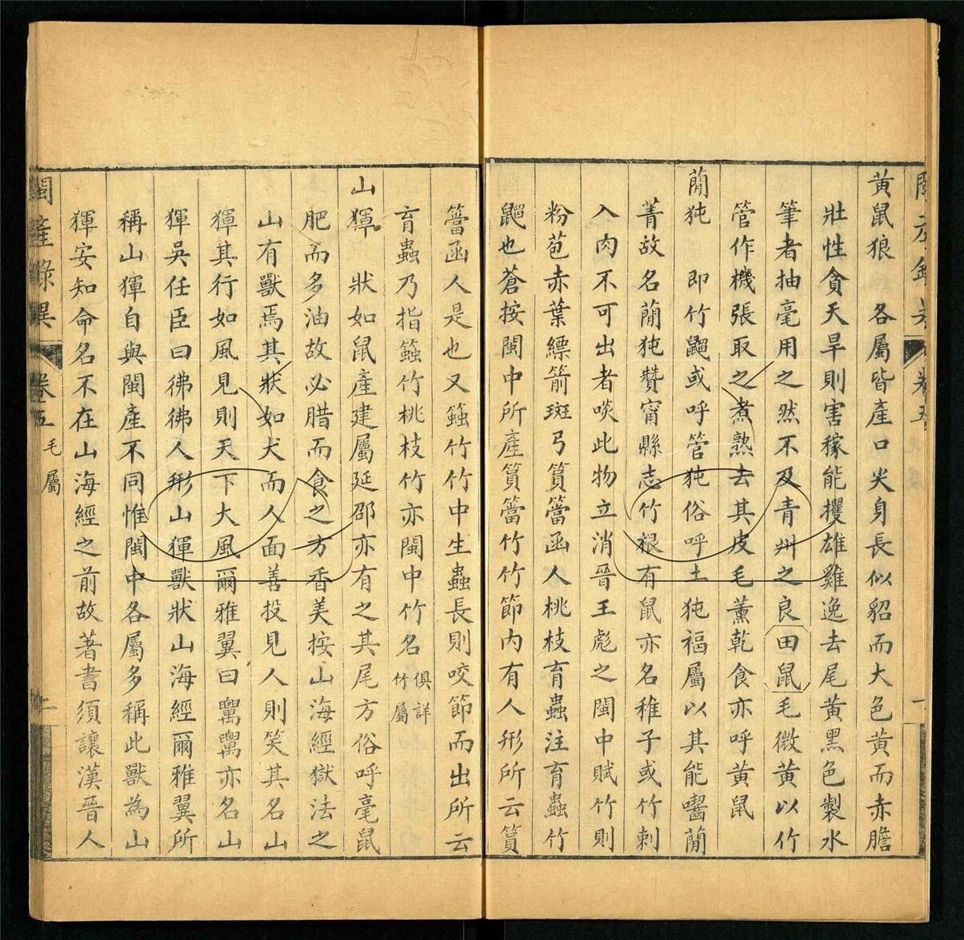 黃鼠狼　各屬皆產口尖身長似貂而大色黃而赤膽
壯性貪天旱則害稼能攫雄雞逸去尾黃黑色製水
筆者抽毫用之然不及青州之良田鼠毛微黃以竹
管作機張取之煮熟去其皮毛薰乾食亦呼黃鼠
䕞㹠　即竹䶉或呼管㹠俗呼土㹠福屬以其能囓䕞
菁故名䕞㹠贊甯縣志竹根有鼠亦名稚子或竹剌
入肉不可出者啖此物立消晉王彪之閩中賦竹則
粉苞赤葉縹箭斑弓篔簹函人桃枝育蟲注育蟲竹
䶉也蒼按閩中所產篔簹竹竹節內有人形所云篔
簹函人是也又䇞竹竹中生蟲長則咬節而出所云
育蟲乃指䇞竹桃枝竹亦閩中竹名俱詳竹屬
山㺔　狀如鼠產建屬延邵亦有之其尾方俗呼毫鼠
肥而多油故必腊而食之方香美按山海經獄法之
山有獸焉其狀如犬而人面善投見人則笑其名山
㺔其行如風見則天下大風爾雅翼曰𤲞𤲞亦名山
㺔吳任臣曰彿彿人形山㺔獸狀山海經爾雅翼所
稱山㺔自與閩產不同惟閩中各屬多稱此獸為山
㺔安知命名不在山海經之前故著書須讓漢晉人
閩產錄異　卷五　毛屬